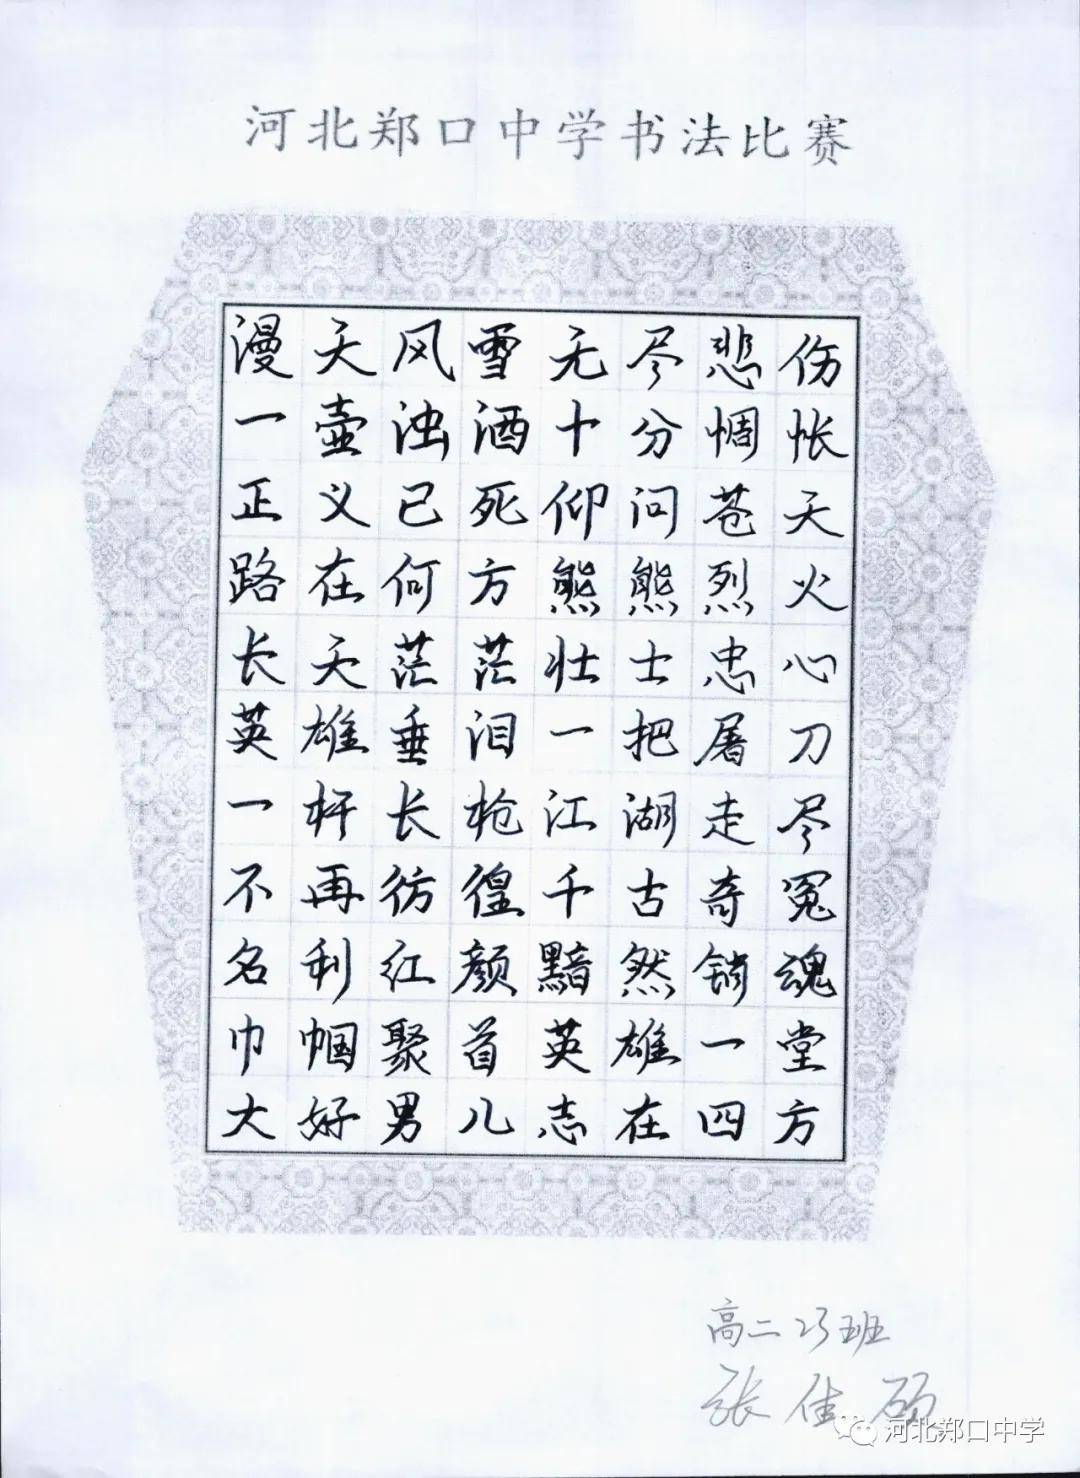 河北郑口中学书法比赛
漫天风雪无尽悲伤
一壶浊酒十分惆怅
正义已死仰问苍天
路在何方熊熊烈火
长天茫茫壮士忠心
英雄垂泪一把屠刀
一杆长枪江湖走尽
不再彷徨千古奇冤
名利红颜黯然销魂
巾帼聚首英雄一堂
大好男儿志在四方
高二23班
张佳硕
河北郑口中学